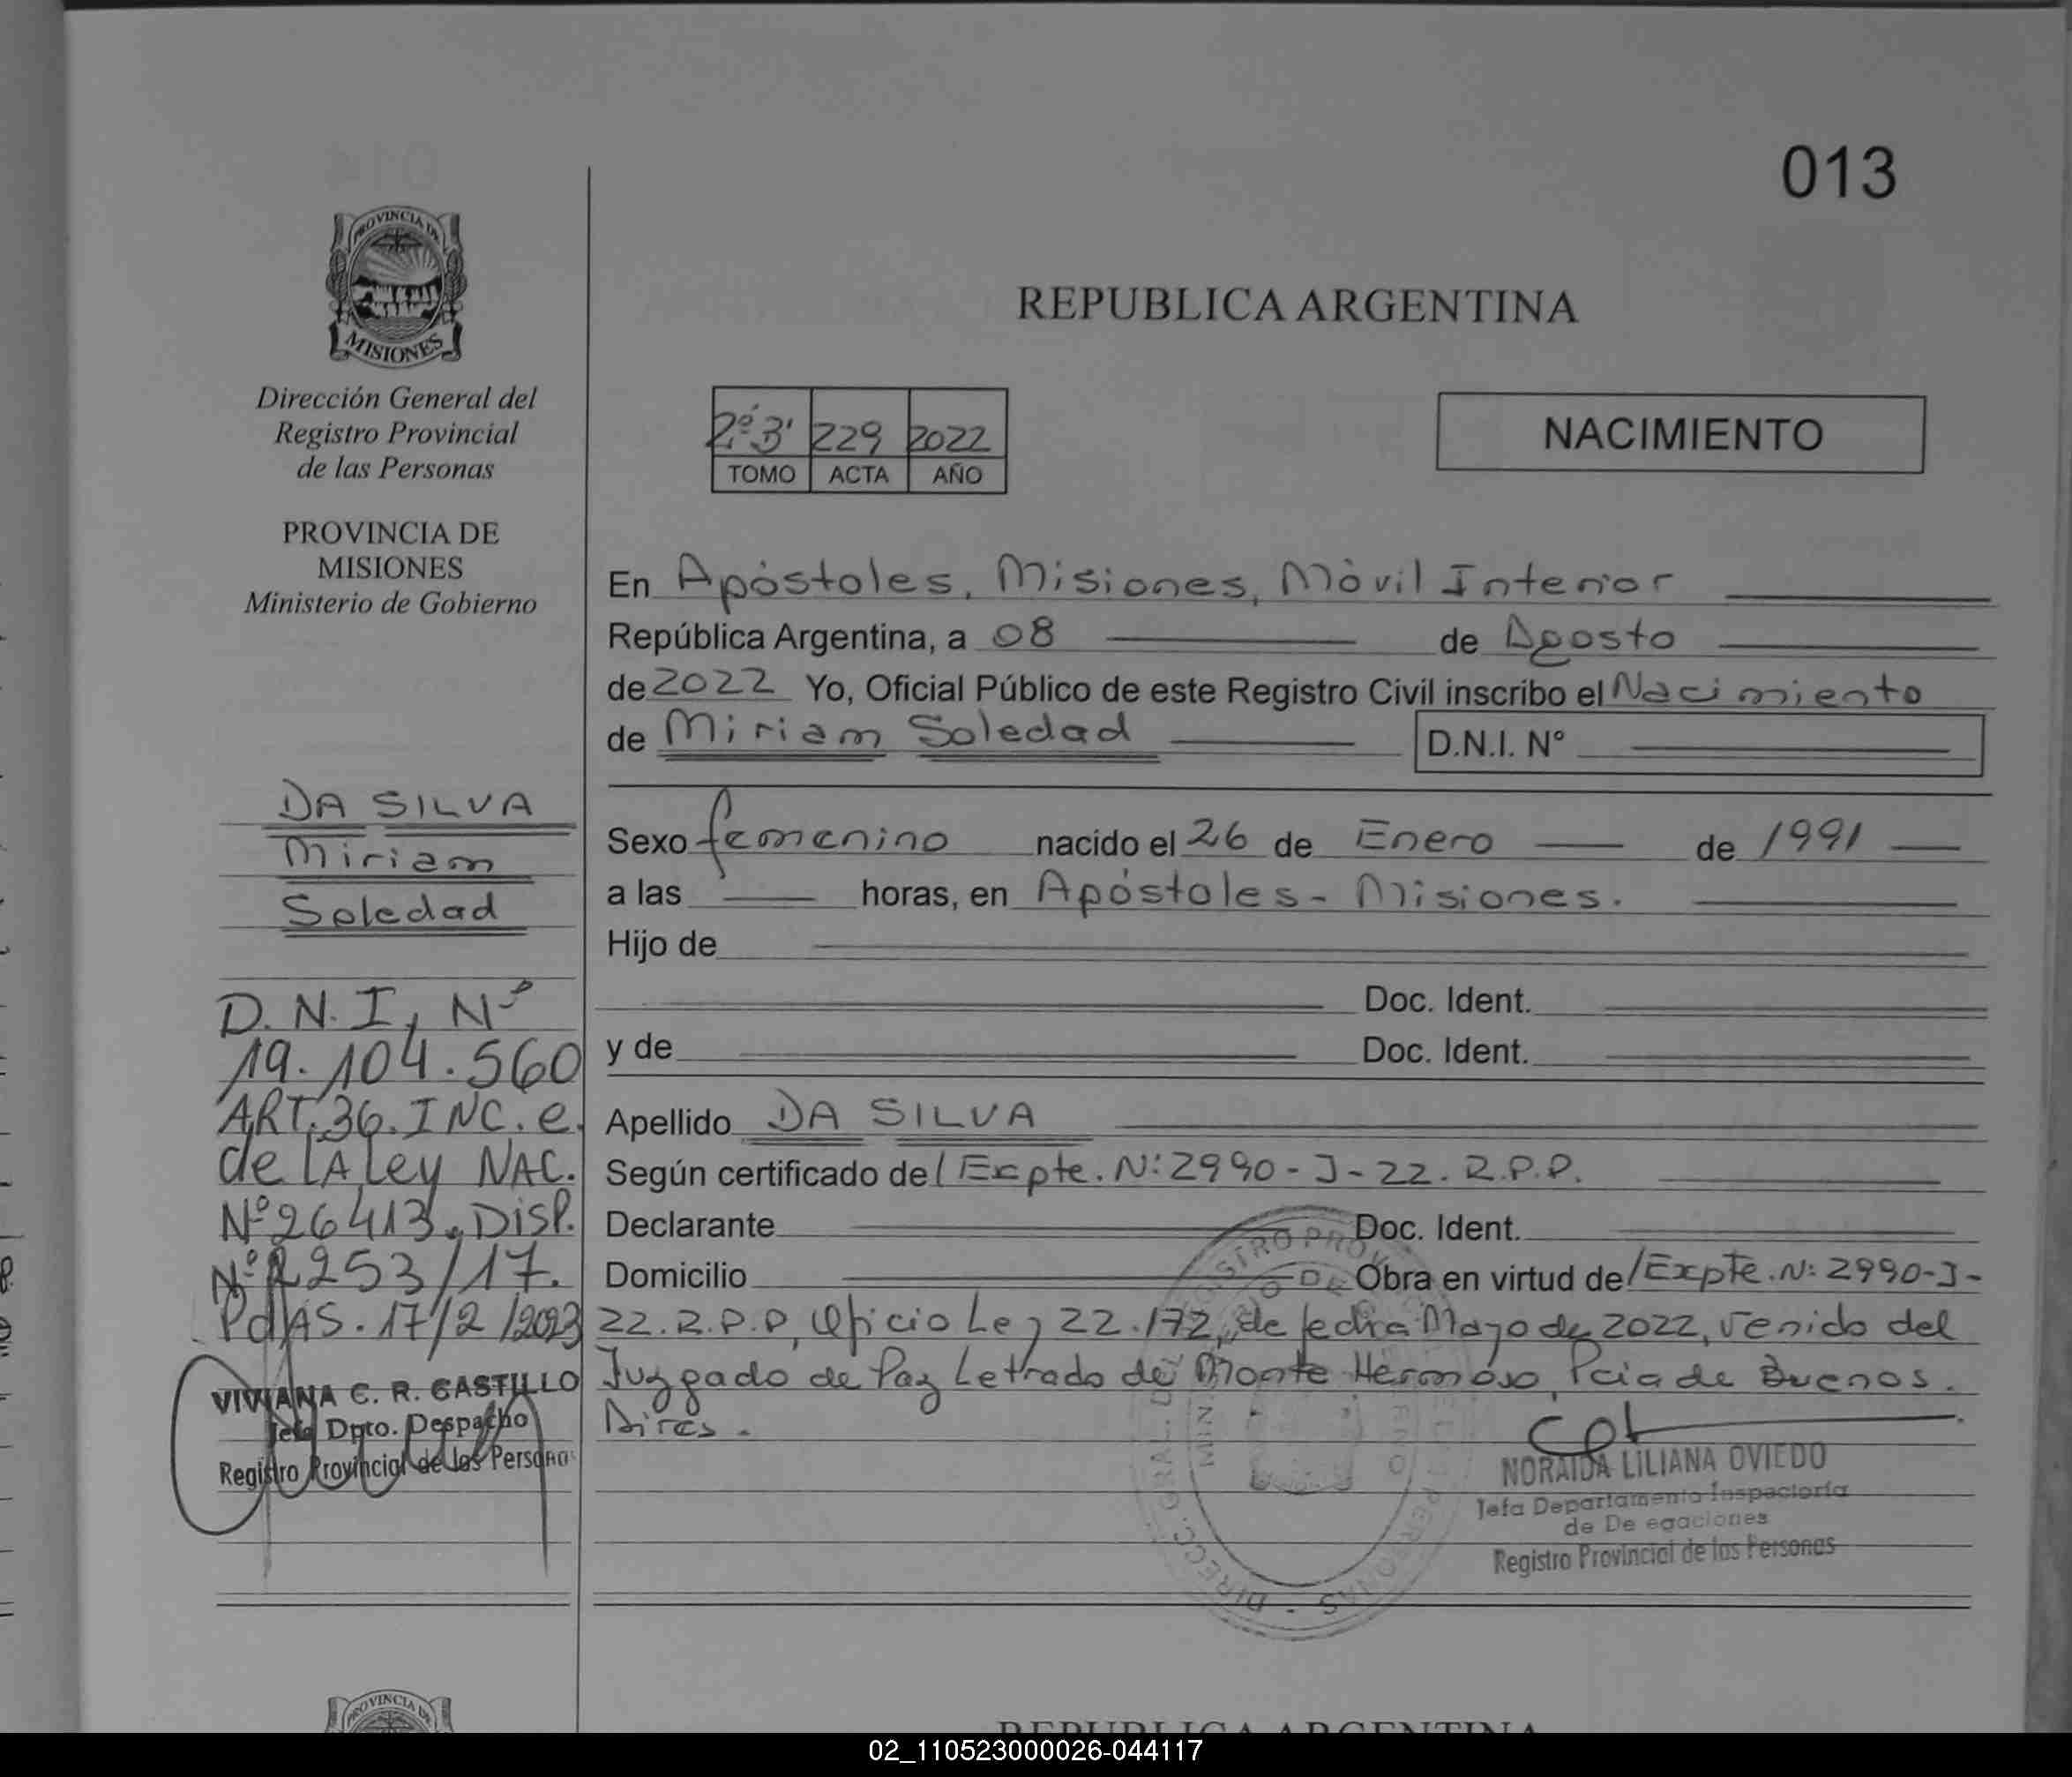 013
PROVINCIA DE
MISIONES
Dirección General del
Registro Provincial
de las Personas
PROVINCIA DE
MISIONES
Ministerio de Gobierno
DA SILVA
Miriam
Soledad
D.N.I, Nº
19.104.560
ART.36.INC.e.
de LA Ley NAC.
Nº26413. DISP.
Nº 2253/17.
PdAS. 17/2/2023
VIVIANA C. R. CASTILLO
Jefa Dpto. Despacho
Registro Provincial de las Personas
REPUBLICA ARGENTINA
2º 3' 229 2022
TOMO ACTA AÑO
NACIMIENTO
En Apóstoles, Misiones, Mòvil Interior
República Argentina, a 08 de Agosto
de 2022 Yo, Oficial Público de este Registro Civil inscribo el Nacimiento
de Miriam Soledad D.N.I. Nº
Sexo femenino nacido el 26 de Enero de 1991
a las horas, en Apóstoles - Misiones.
Hijo de
Doc. Ident.
y de Doc. Ident.
Apellido DA SILVA
Según certificado del Expte. N: 2990-J-22. R.P.P.
Declarante Doc. Ident.
Domicilio Obra en virtud del Expte. N: 2990-J-
22. R.P.P, Oficio Ley 22.172, de fecha Mayo de 2022, venido del
Juzgado de Paz Letrado de Monte Hermoso, Pcia de Buenos.
Aires.
NORAIDA LILIANA OVIEDO
Jefa Departamento Inspectoría
de De egaciones
Registro Provincial de las Personas
PROVINCIA D
REPUBLICA ARGENTINA
02_110523000026-044117